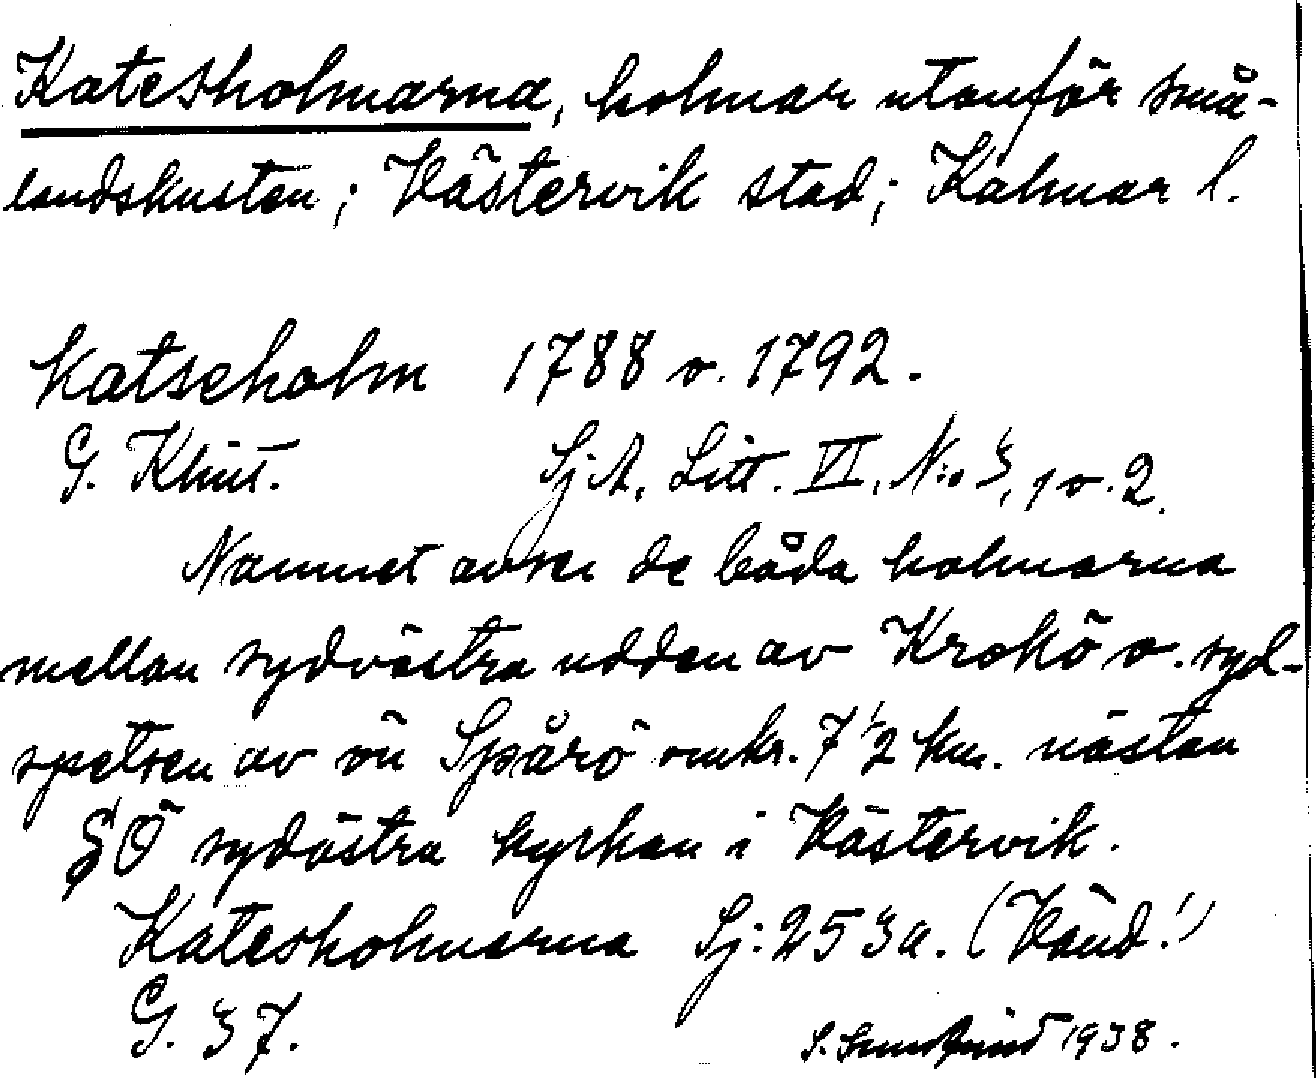 Katesholmarna, holmar utanför små-
landskusten; Västervik stad; Kalmar l.
Katseholm 1788 o. 1792.
G. Klint. Sj.A. Litt. VI, N:o 3, 1 o. 2.
Namnet avser de båda holmarna
mellan sydvästra udden av Krokö o. syd-
spetsen av ön Spårö omkr. 7 1/2 km. nästan
SO sydöstra kyrkan i Västervik.
Katesholmarna Sj: 253a. (Vänd!)
G. 37. 1938.